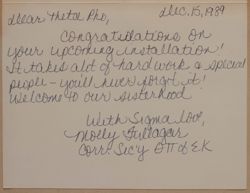 Dear Theta Rho, Dec. 15, 1989
Congratulations on
your upcoming installation!
It takes alot of hard work & special
people - you'll never forget it!
Welcome to our sisterhood
With Sigma love,
Molly
Corr. Sec'y